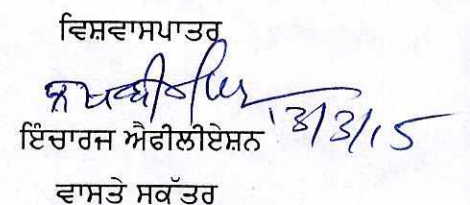 ਵਿਸ਼ਵਾਸਪਾਤਰ
13/3/15
ਇੰਚਾਰਜ ਐਫੀਲੀਏਸ਼ਨ
ਵਾਸਤੇ ਸਕੱਤਰ